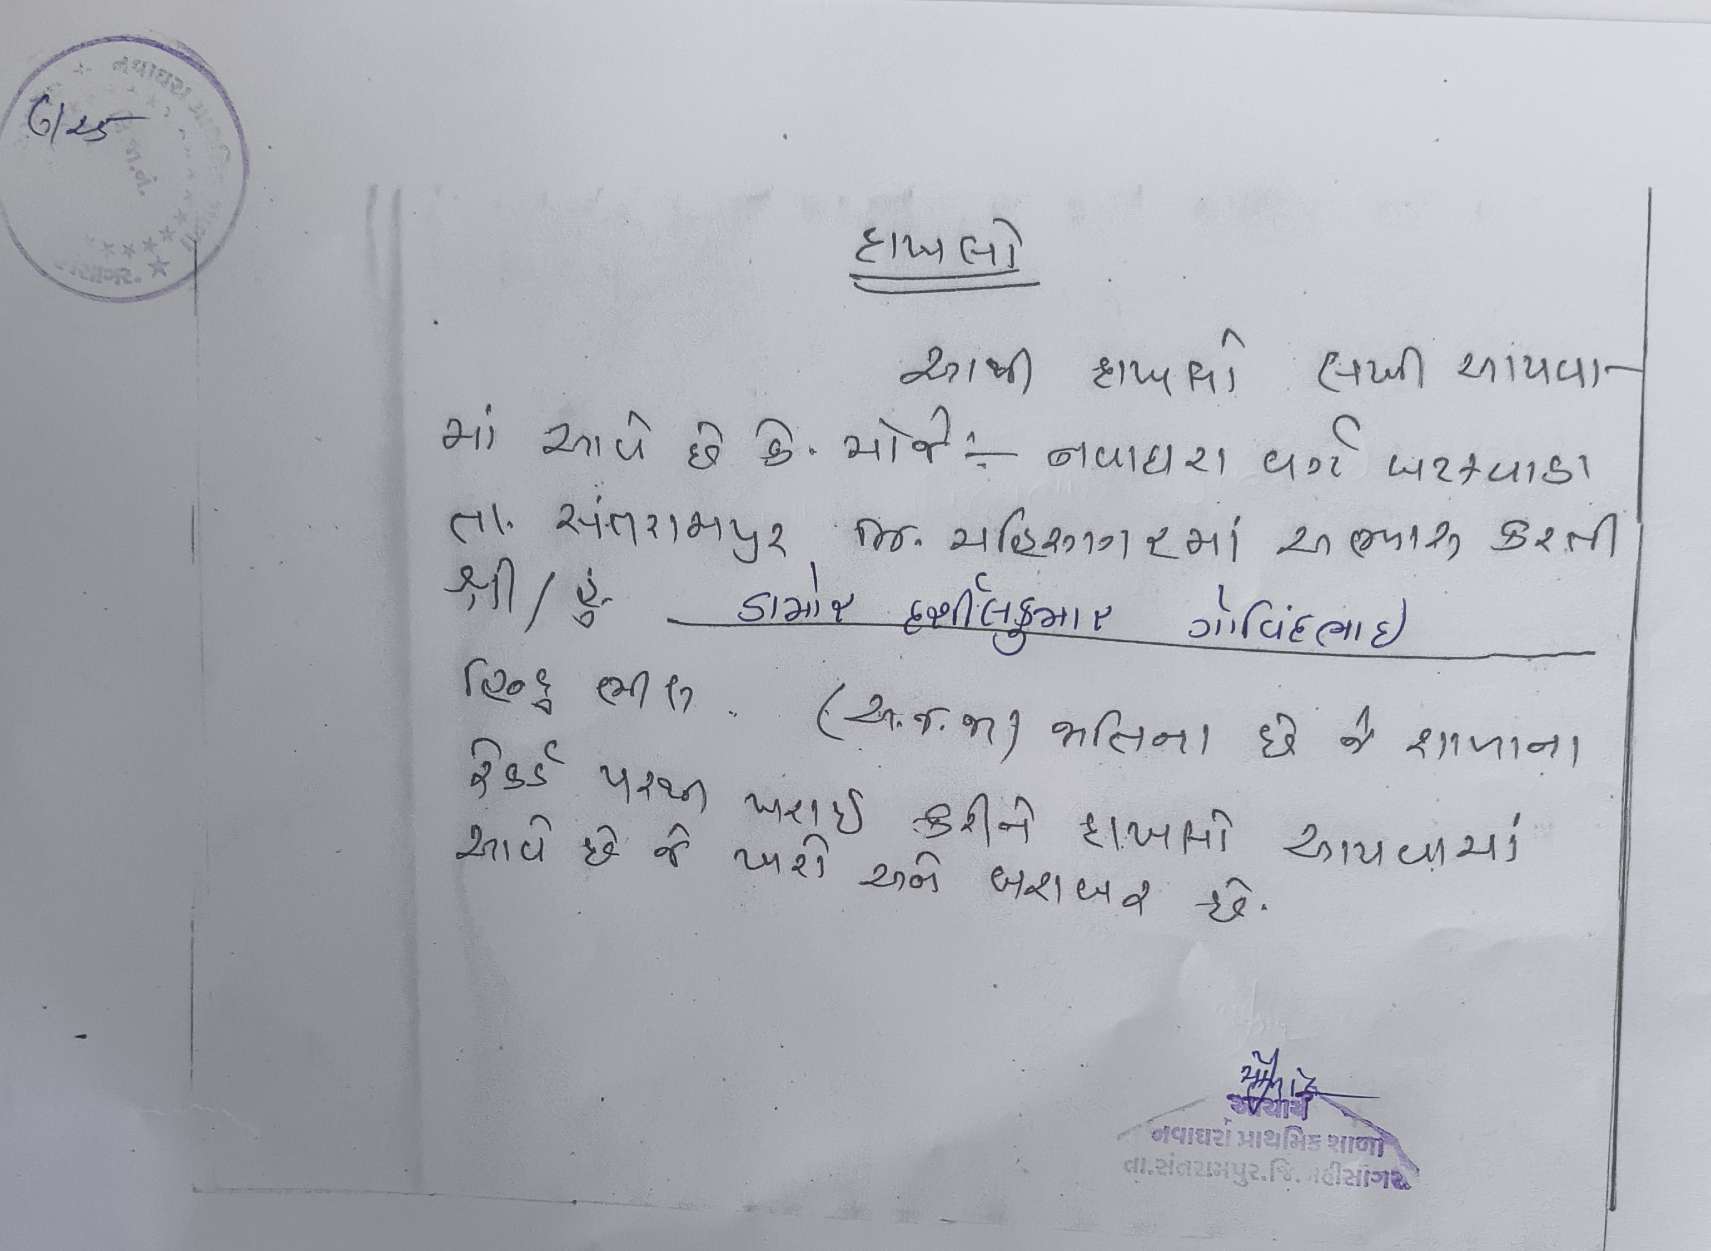 દાખલો
આથી દાખલો લખી આપવા-
માં આવે છે કે. મોજે:- નવાઘરા વર્ગ ખરસવાડા
તા. સંતરામપુર જિ. મહિસાગરમાં અભ્યાસ કરતી
શ્રી / કુ. ડામોર હર્ષીલકુમાર ગોવિંદભાઇ
હિન્દુ ભીલ. (અ.જ.જા) જાતિના છે જે શાળાના
રેકર્ડ પરથી ખરાઇ કરીને દાખલો આપવામાં
આવે છે જે ખરો અને બરાબર છે.
આચાર્ય
નવાઘરા પ્રાથમિક શાળા
તા.સંતરામપુર.જિ.મહીસાગર